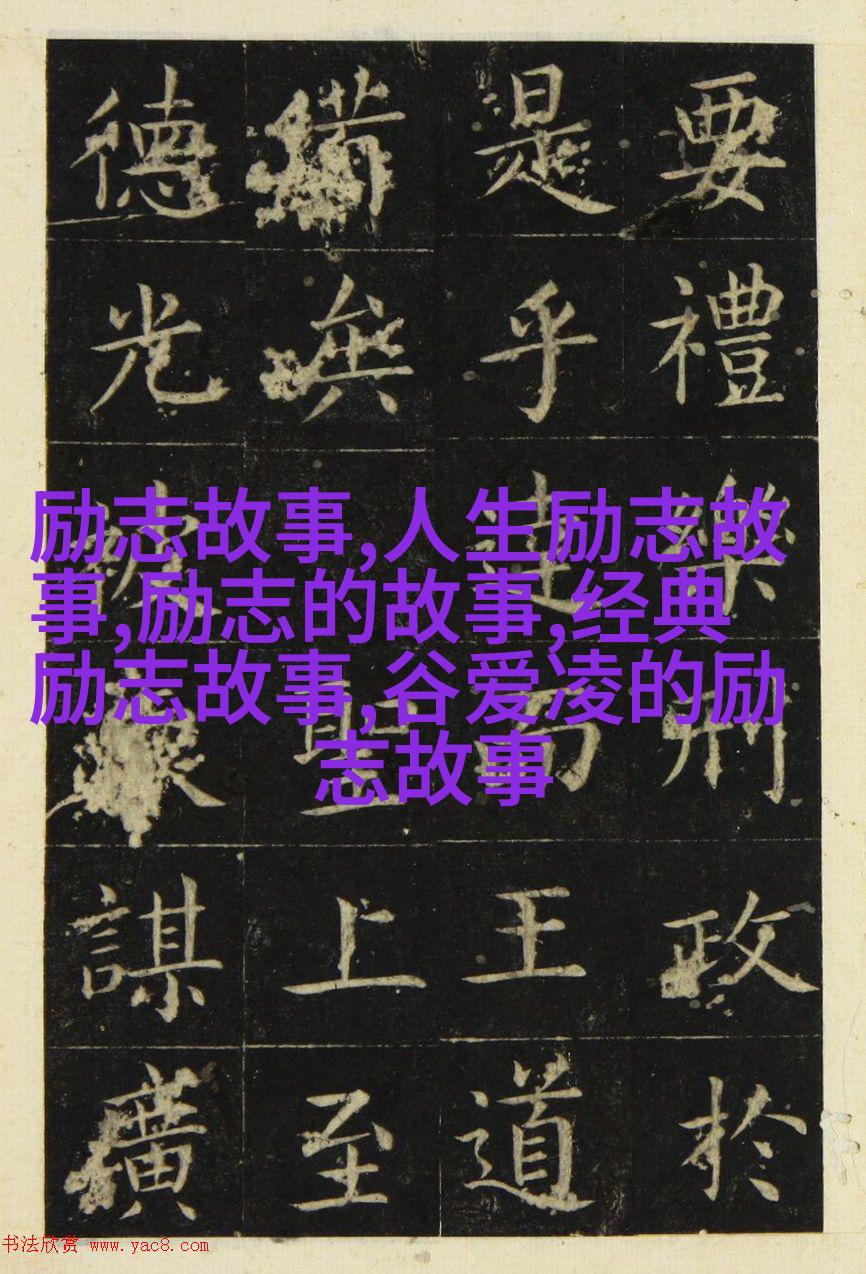 要禮樂刑政於
是乎而王道
聖上至
德光謀廣
励志故事,人生励志故
事,励志的故事,经典
励志故事,谷爱凌的励
志故事
书法欣赏 www.yac8.com